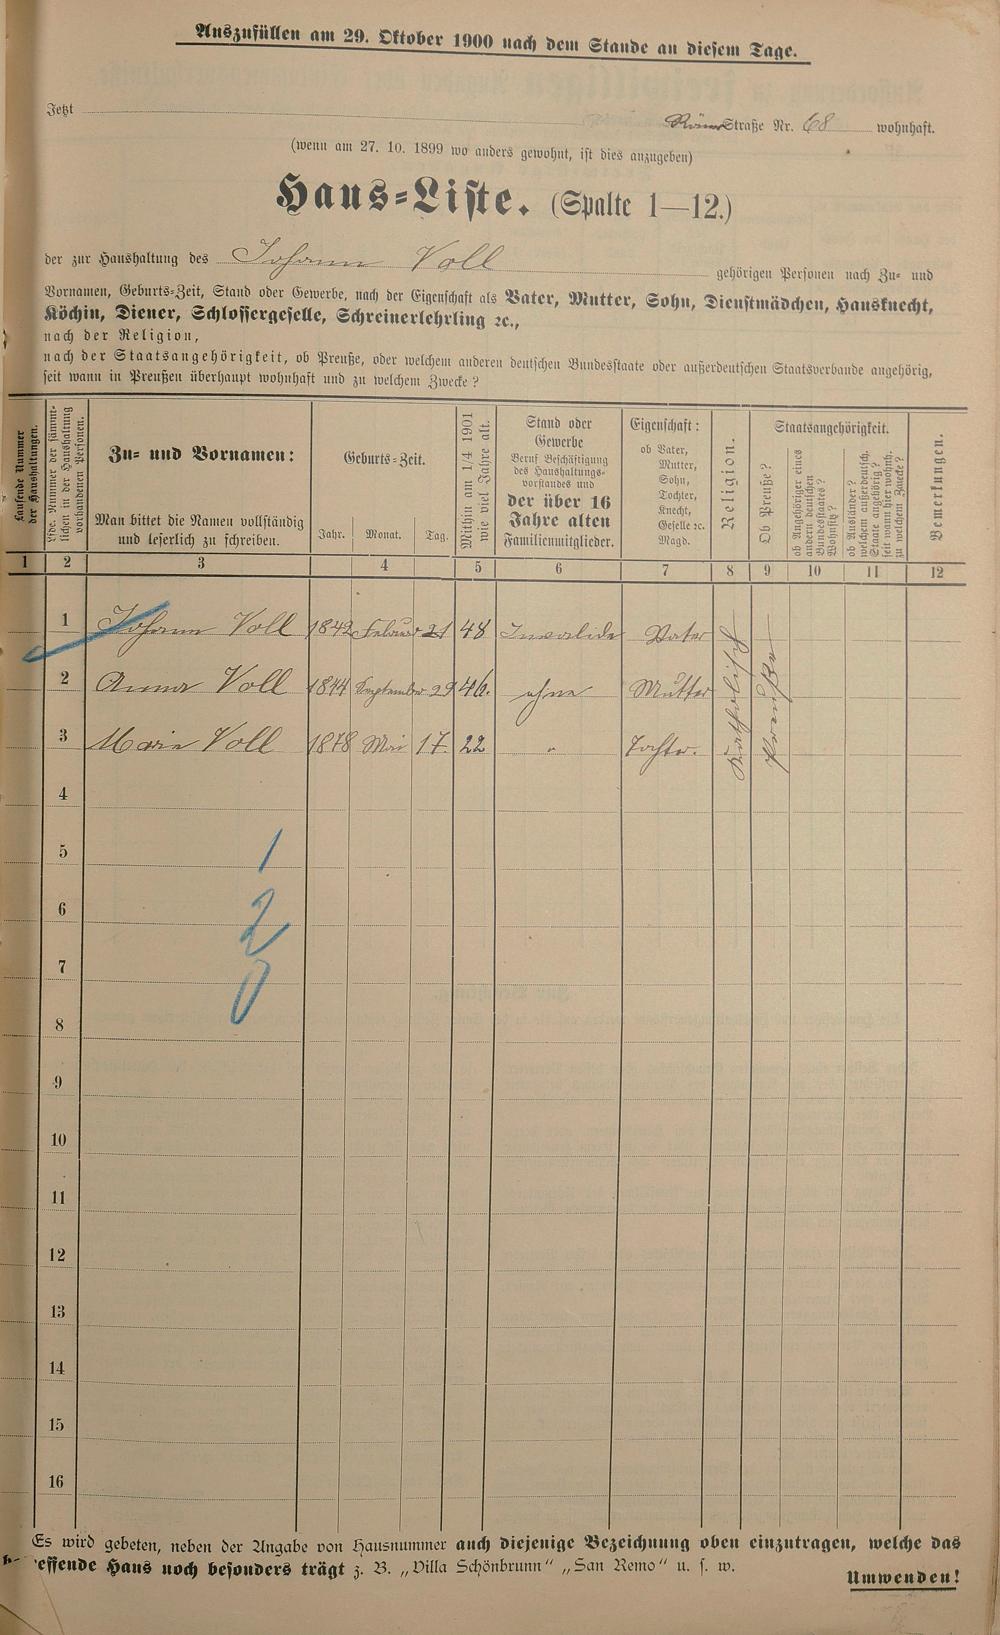 Auszufüllen am 29. Oktober 1900 nach dem Stande an diesem Tage.
Jetzt Römer Straße Nr. 68 wohnhaft.
(wenn am 27. 10. 1899 wo anders gewohnt, ist dies anzugeben)
Haus-Liste. (Spalte 1—12.)
der zur Haushaltung des Johann Voll gehörigen Personen nach Zu- und
Vornamen, Geburts-Zeit, Stand oder Gewerbe, nach der Eigenschaft als Vater, Mutter, Sohn, Dienstmädchen, Hausknecht,
Köchin, Diener, Schlossergeselle, Schreinerlehrling ꝛc.,
nach der Religion,
nach der Staatsangehörigkeit, ob Preuße, oder welchem anderen deutschen Bundesstaate oder außerdeutschen Staatsverbande angehörig,
seit wann in Preußen überhaupt wohnhaft und zu welchem Zwecke?
Laufende Nummer
der Haushaltungen.
Lfde. Nummer der sämmt-
lichen in der Haushaltung
vorhandenen Personen.
Zu- und Vornamen:
Man bittet die Namen vollständig
und leserlich zu schreiben.
Geburts-Zeit.
Jahr. Monat. Tag.
Mithin am 1/4 1901
wie viel Jahre alt.
Stand oder
Gewerbe
Beruf Beschäftigung
des Haushaltungs-
vorstandes und
der über 16
Jahre alten
Familienmitglieder.
Eigenschaft:
ob Vater,
Mutter,
Sohn,
Tochter,
Knecht,
Geselle ꝛc.
Magd.
Religion.
Staatsangehörigkeit.
Ob Preuße?
ob Angehöriger eines
andern deutschen
Bundesstaates?
Wohnsitz?
ob Ausländer?
welchem außerdeutsch.
Staate angehörig?
seit wann hier wohnh.
zu welchem Zwecke?
Bemerkungen.
1 2 3 4 5 6 7 8 9 10 11 12
1 Johann Voll 1842 Februar 21 48 Invalide Vater Katholisch Preuße
2 Anna Voll 1844 September 29 46. ohne Mutter
3 Marie Voll 1878 Mai 17. 22 " Tochter.
4
5 1
6 2
7 0
8
9
10
11
12
13
14
15
16
Es wird gebeten, neben der Angabe von Hausnummer auch diejenige Bezeichnung oben einzutragen, welche das
effende Haus noch besonders trägt z. B. „Villa Schönbrunn" „San Remo" u. s. w.
Umwenden!